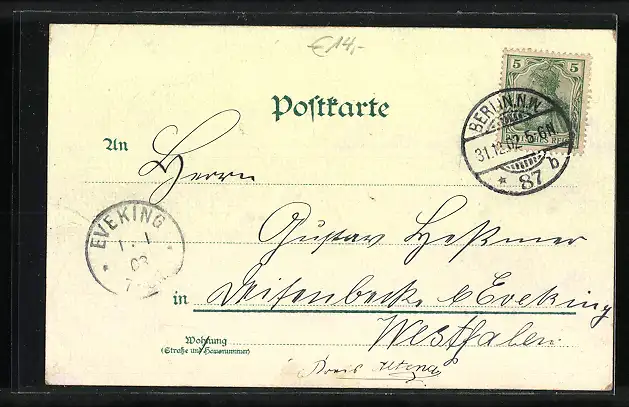 €14,-
Postkarte
5 5
BERLIN N.W.
31.12.02. 6-7N
* 87 b
An
Herrn
EVEKING
1. 1
03
7
Gustav Heßmer
in Deitenbecke b Eveking
Westfalen
Wohnung
(Straße und Hausnummer)
Kreis Altena